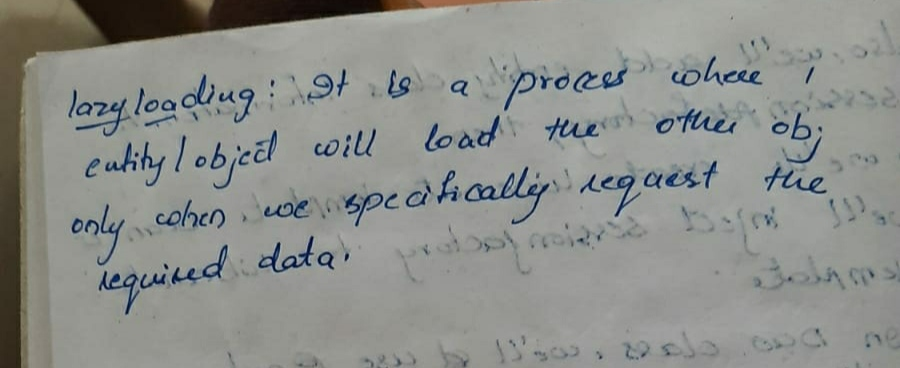 lazy loading : It is a process where 1
entity / object will load the other obj
only when we specifically request the
required data.